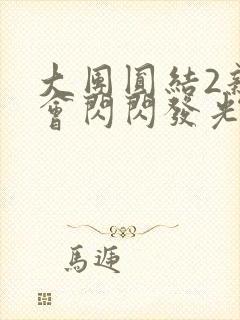 大團圓結2新
會閃閃發光
馬遞